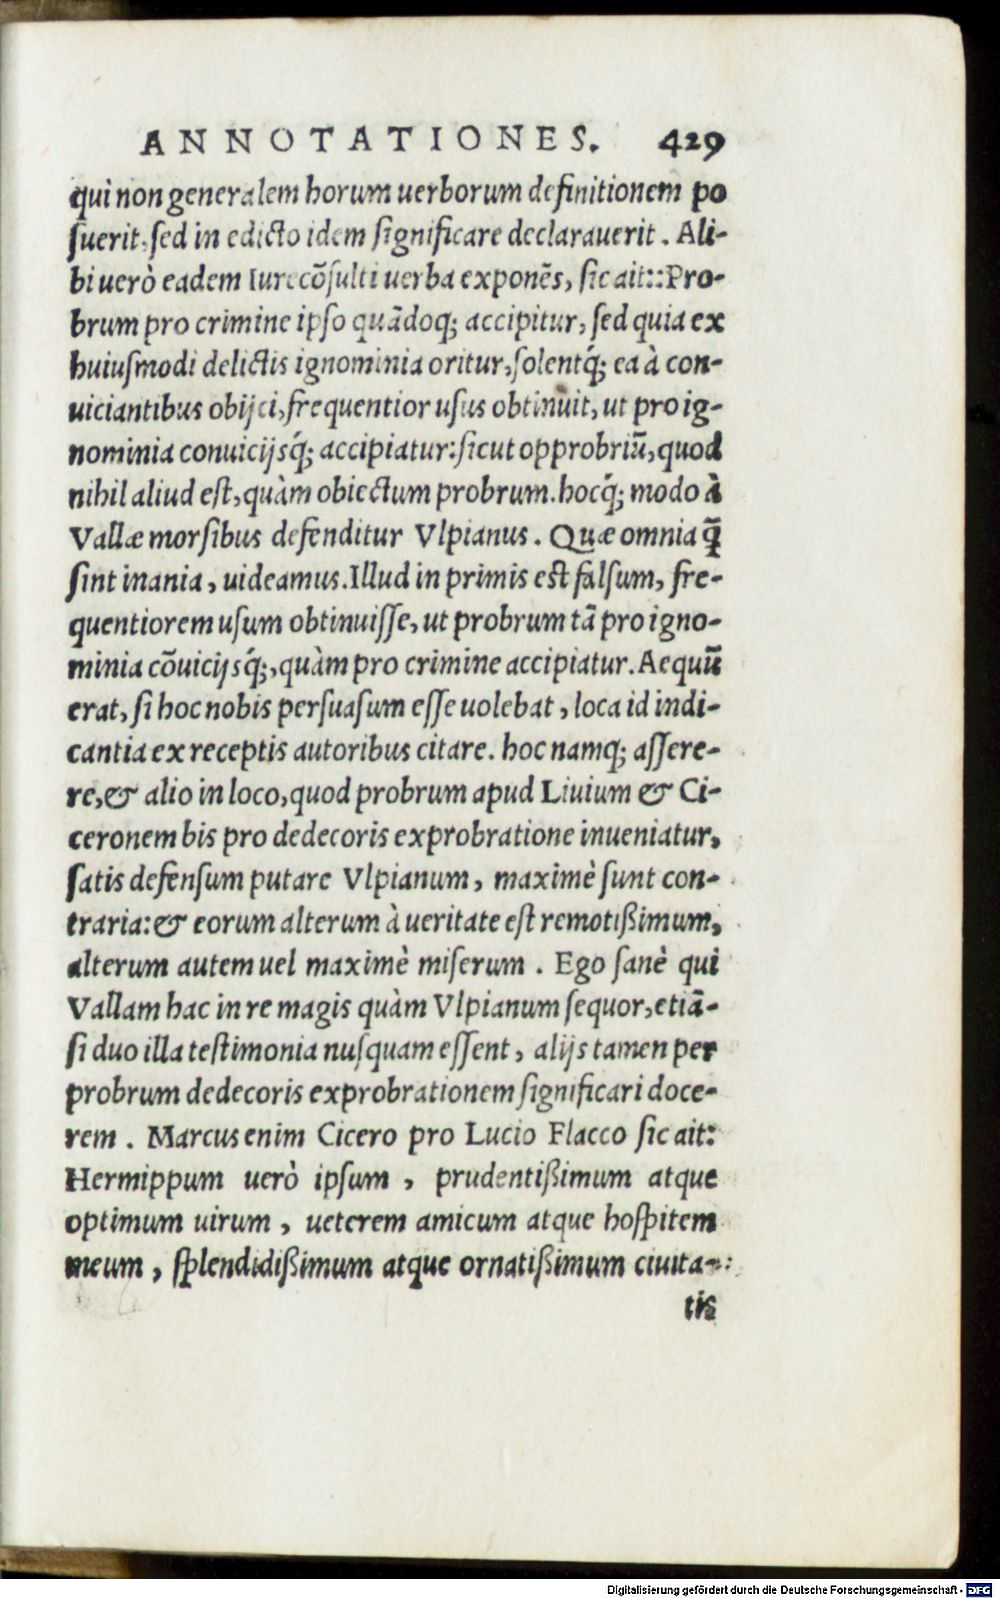 ANNOTATIONES. 429
qui non generalem horum uerborum definitionem po
ſuerit, ſed in edicto idem ſignificare declarauerit. Ali-
bi uerò eadem Iurecõſulti uerba exponẽs, ſic ait: Pro-
brum pro crimine ipſo quãdoq; accipitur, ſed quia ex
huiuſmodi delictis ignominia oritur, ſolentq́; ea à con-
uiciantibus obijci, frequentior uſus obtinuit, ut pro ig-
nominia conuicijsq́; accipiatur: ſicut opprobriũ, quod
nihil aliud eſt, quàm obiectum probrum. hocq́; modo à
Vallæ morſibus defenditur Vlpianus. Quæ omnia q̃
ſint inania, uideamus. Illud in primis eſt falſum, fre-
quentiorem uſum obtinuiſſe, ut probrum tã pro igno-
minia cõuicijsq́;, quàm pro crimine accipiatur. Aequũ
erat, ſi hoc nobis perſuaſum eſſe uolebat, loca id indi-
cantia ex receptis autoribus citare. hoc namq; aſſere-
re, & alio in loco, quod probrum apud Liuium & Ci-
ceronem bis pro dedecoris exprobratione inueniatur,
ſatis defenſum putare Vlpianum, maximè ſunt con-
traria: & eorum alterum à ueritate eſt remotißimum,
alterum autem uel maximè miſerum. Ego ſanè qui
Vallam hac in re magis quàm Vlpianum ſequor, etiã-
ſi duo illa teſtimonia nuſquam eſſent, alijs tamen per
probrum dedecoris exprobrationem ſignificari doce-
rem. Marcus enim Cicero pro Lucio Flacco ſic ait:
Hermippum uerò ipſum, prudentißimum atque
optimum uirum, ueterem amicum atque hoſpitem
meum, ſplendidißimum atque ornatißimum ciuita-
tis
Digitalisierung gefördert durch die Deutsche Forschungsgemeinschaft - DFG